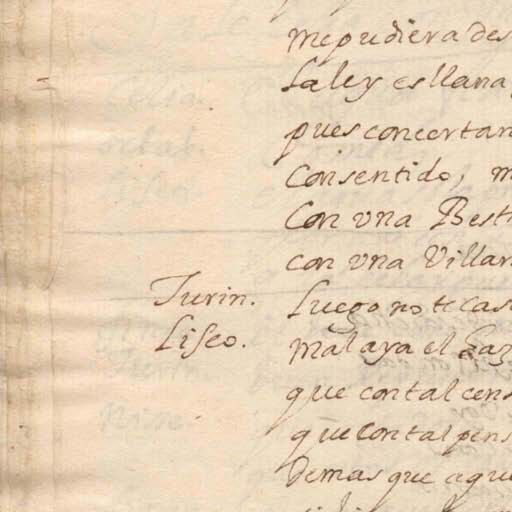 me pudiera des
La ley es llana
pues concertar
Consentido, m
Con vna Best
con vna Villan
Turin. Luego no te cas
Liseo. Mal aya el
que con tal cens
que con tal pens
Demas que aque